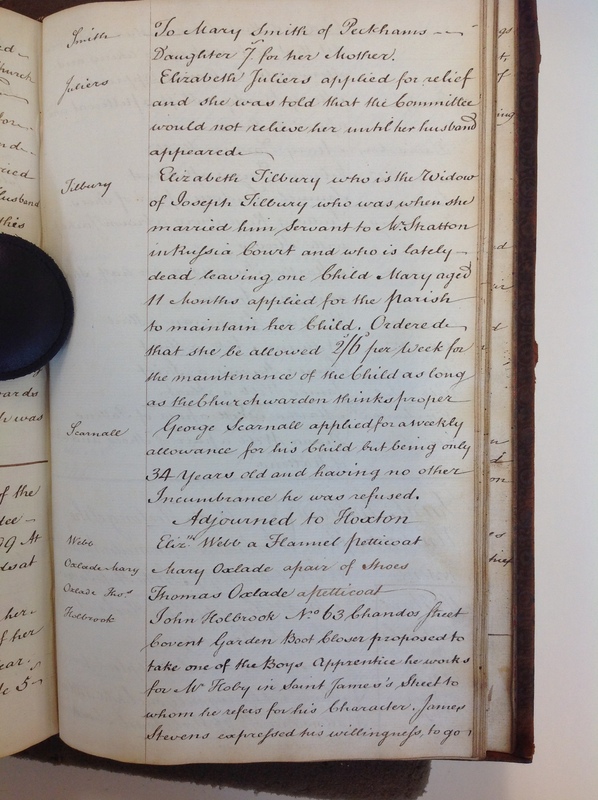 Smith To Mary Smith of Peckhams
Daughter 7s. for her Mother.
Juliers Elizabeth Juliers applied for relief
and she was told that the Committee
would not relieve her until her husband
appeared
Tilbury Elizabeth Tilbury who is the Widow
of Joseph Tilbury who was when she
married him Servant to Mr. Stratton
in Russia Court and who is lately
dead leaving one Child Mary aged
11 Months applied for the parish
to maintain her Child. Ordered
that she be allowed 2s/6d per Week for
the maintenance of the Child as long
as the Churchwarden thinks proper
Scarnall George Scarnall applied for a weekly
allowance for his Child but being only
34 Years old and having no other
Incumbrance he was refused.
Adjourned to Hoxton
Webb Elizth. Webb a Flannel petticoat
Oxlade Mary Mary Oxlade a pair of Shoes
Oxlade Thos. Thomas Oxlade a petticoat
Holbrook John Holbrook No. 63 Chandos Street
Covent Garden Boot Closer proposed to
take one of the Boys Apprentice he works
for Mr Hoby in Saint James's Street to
whom he refers for his Character. James
Stevens expressed his willingness, to go